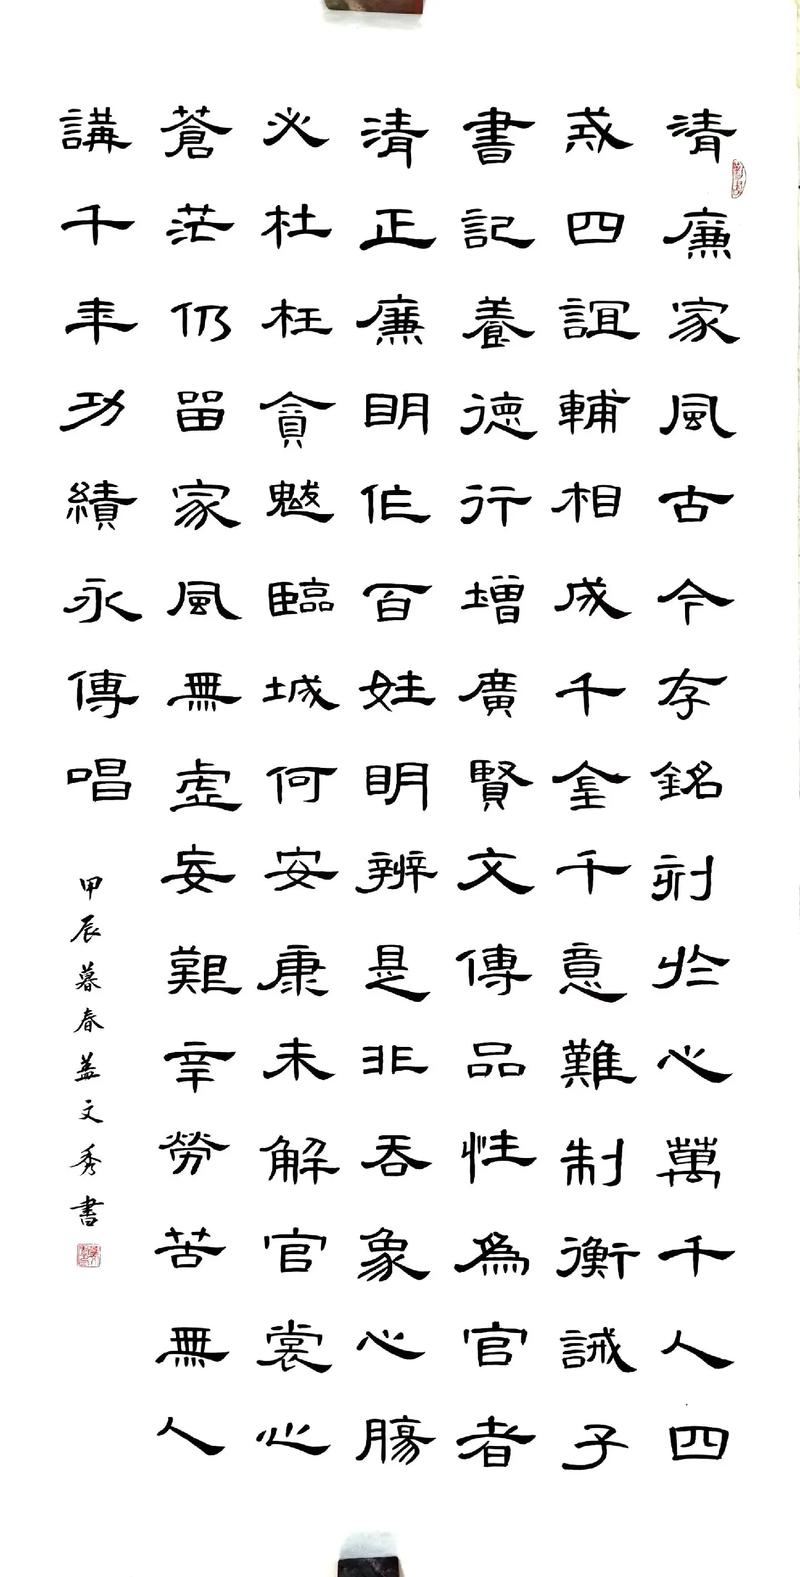 清廉家風古今存銘刻於心萬千人四
惑四誼輔相成千金千意難制衡誡子
書記養德行增廣賢文傳品性為官者
清正廉明作百姓明辨是非吞象心腸
必杜枉貪魃臨城何安康未解官裳心
蒼茫仍留家風無虛妄艱辛勞苦無人
講千年功績永傳唱
甲辰暮春蓋文秀書